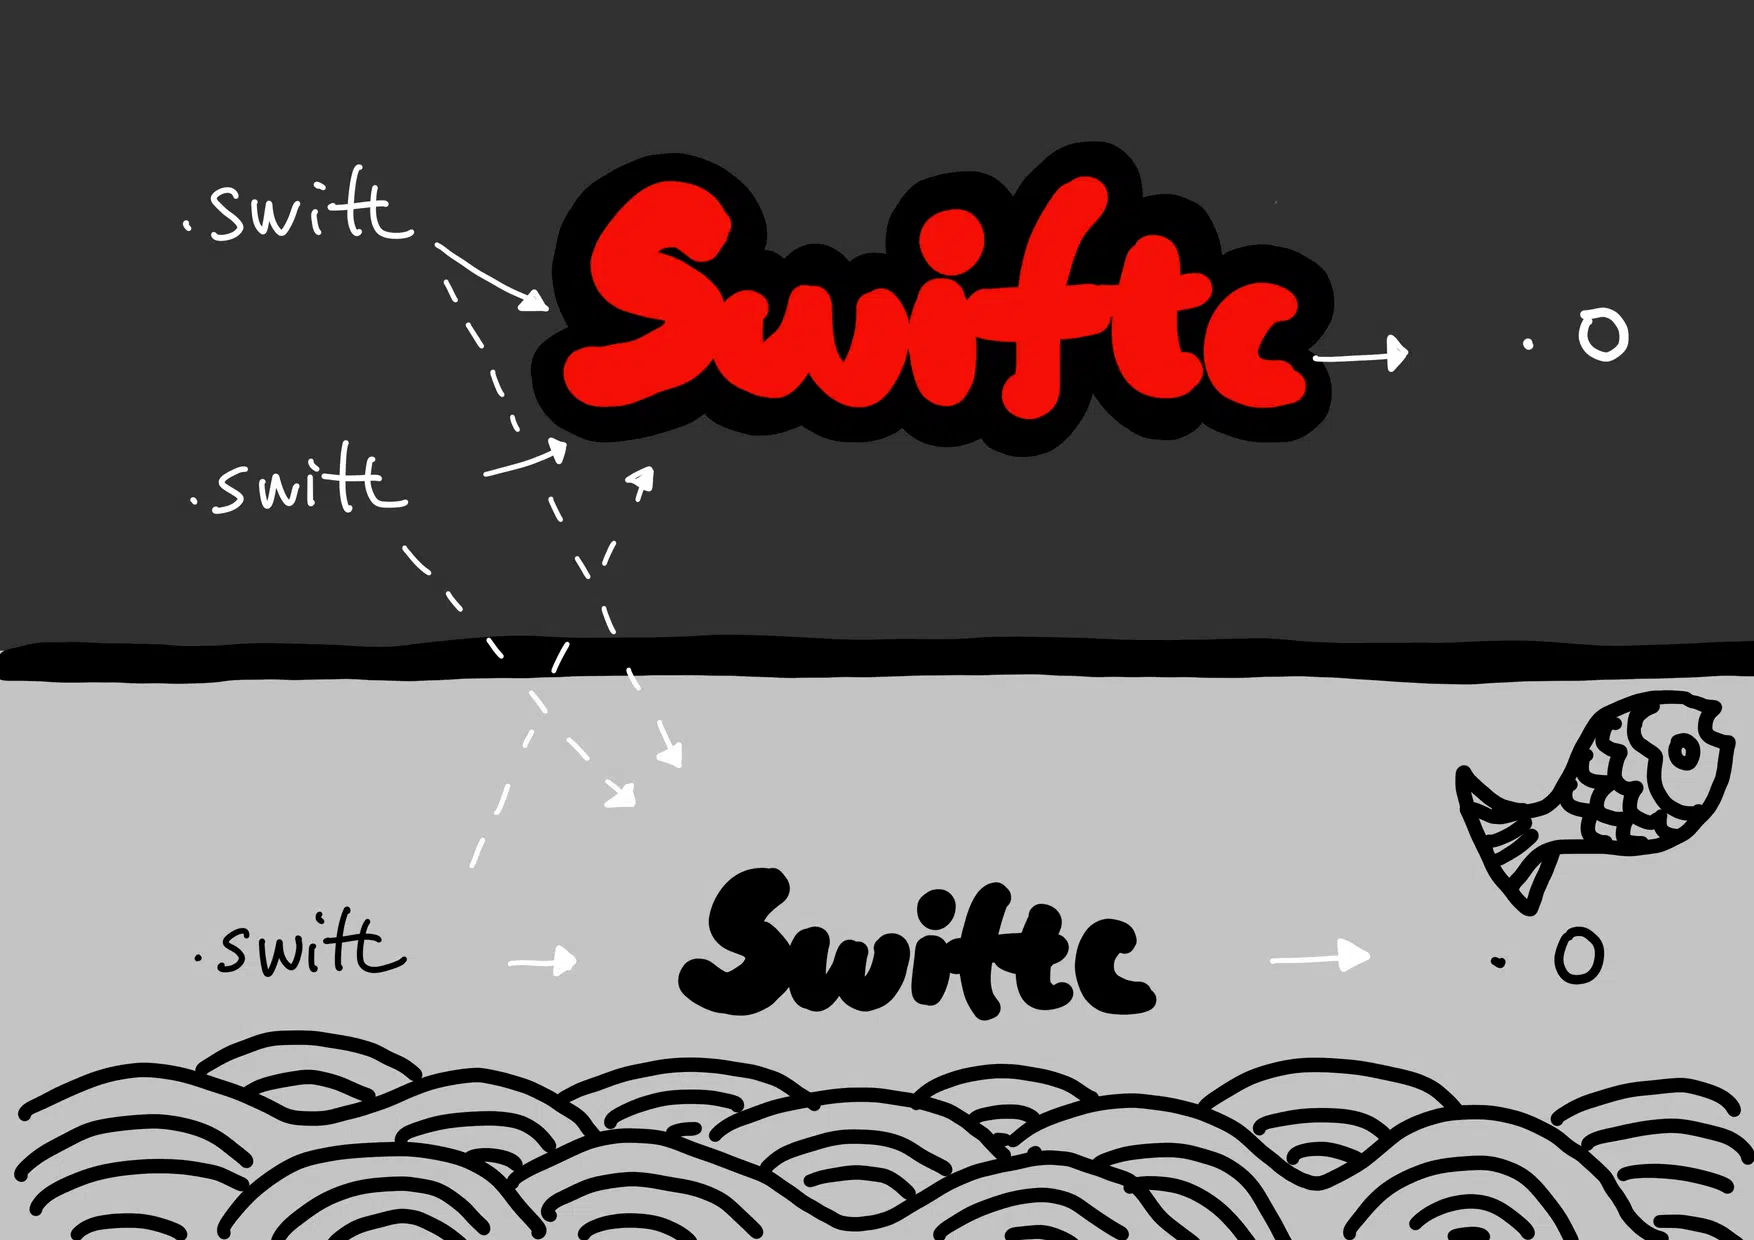 .swift
Swiftc
. o
.swift
.swift
Swiftc
. o